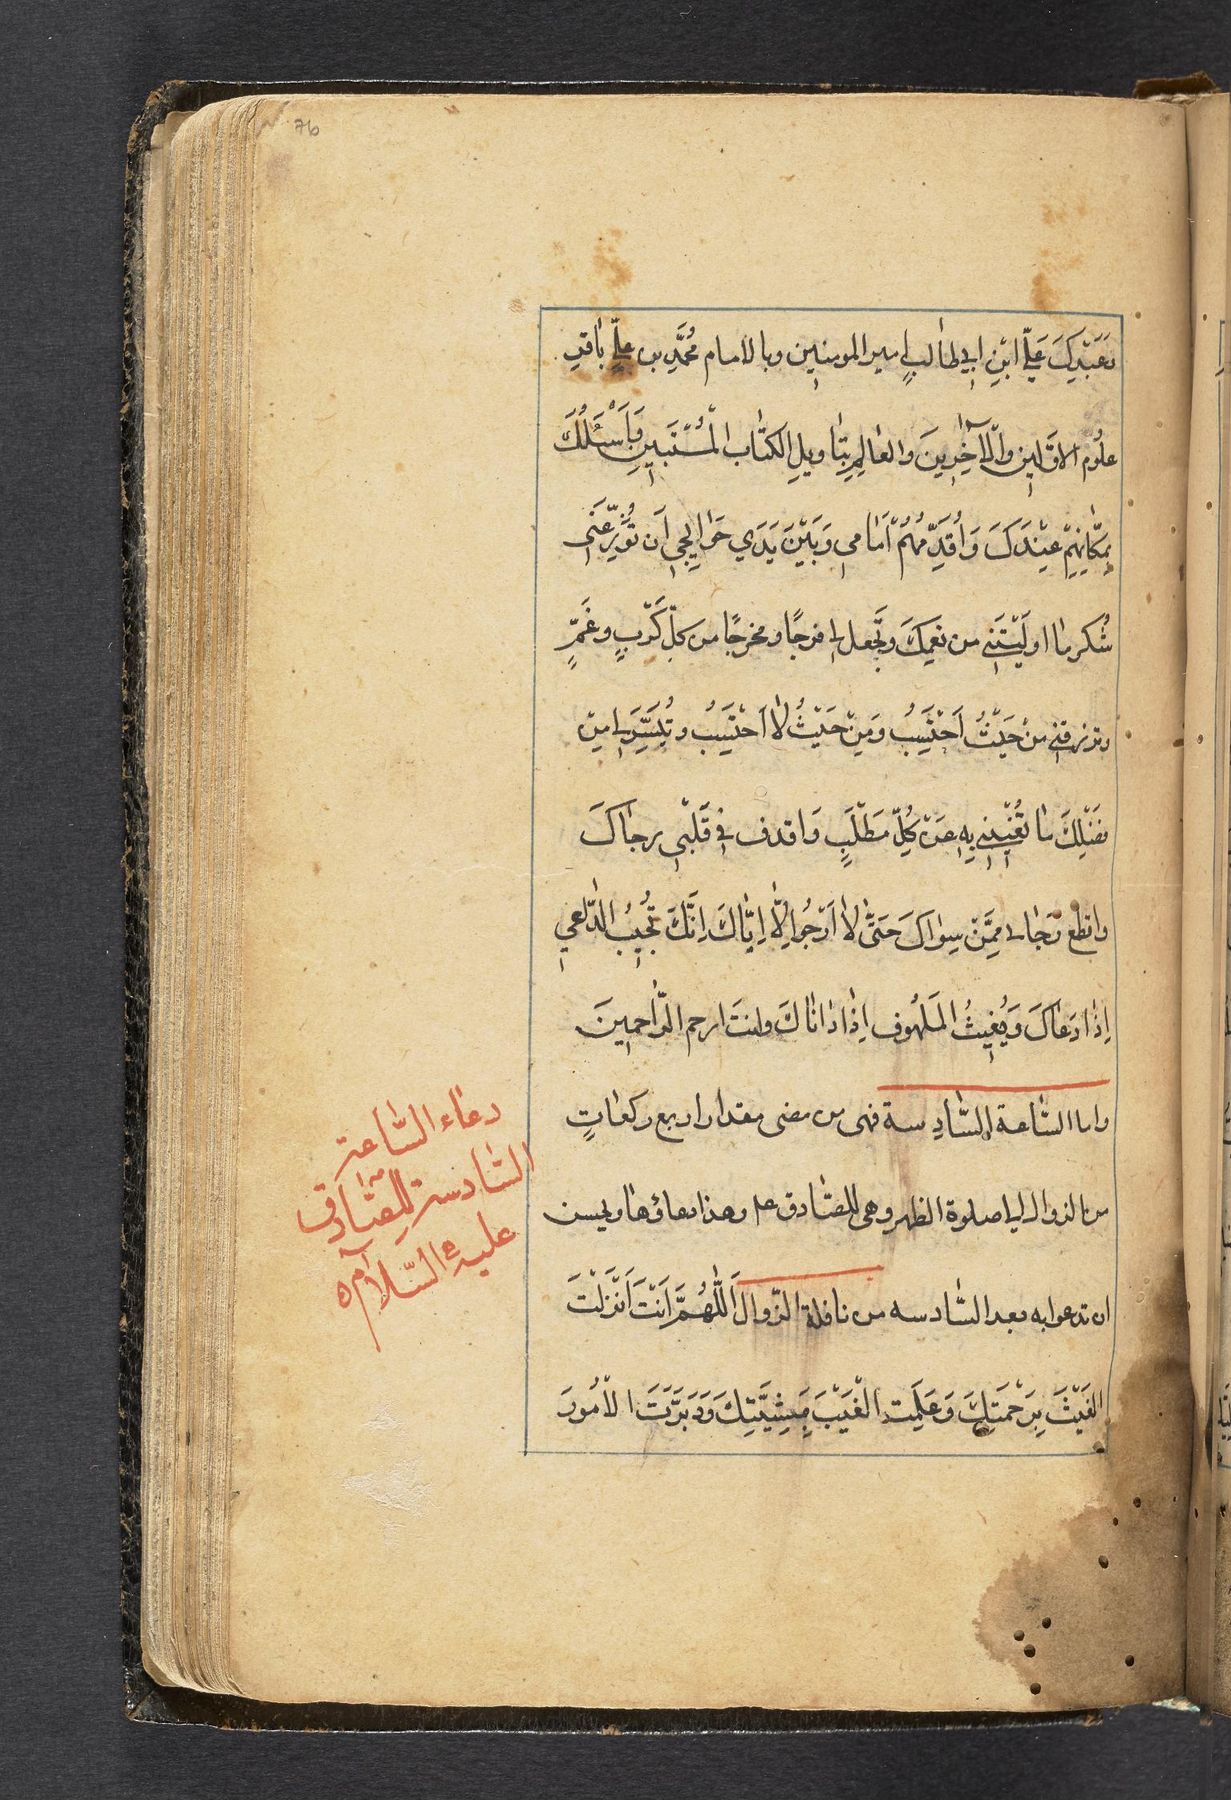 76
وَعَبْدِكَ عَلِيِّ ابْنِ ابي طالبٍ امير المومنين وبالامام مُحَمَّدِ بن عليٍّ باقرِ
علُوم الاوّلين والآخِرِينَ والعالِمِ بتاويلِ الكتاب الْمُسْتَبينِ وَاَسْئَلُكَ
بِمَكانِهِمْ عِنْدَكَ وَاُقَدِّمُهُمْ اَمامي وَبَيْنَ يَدَي حَوايجي اَن تُوزِعَني
شُكر ما اولَيْتَني من نعمِكَ وتَجعل لي فرجًا ومخرجًا من كلّ كَرْبٍ وغَمٍّ
وترزقني من حَيْثُ اَحْتَسِبُ وَمِنْ حَيْثُ لا اَحْتَسِبُ وتُيَسِّرَ لي مِنْ
فَضْلِكَ ما تُغْنِيني بِهِ عَنْ كُلِّ مَطْلَبٍ وَاقذف في قَلْبي رجاكَ
واقطع رَجائي مِمَّنْ سِواكَ حَتّى لا اَرْجُوا اِلّا اِيّاكَ اِنَّكَ تُجيبُ الدّاعي
اِذا دَعاكَ وَتُغيثُ المَلهُوف اِذا ناداكَ وانتَ ارحم الرّاحمينَ
واما السّاعة السّادِسة فهي من مضى مقدار اربع ركعاتٍ
من الزوال الى صلوة الظهر وهي للصّادق عم وهذا دعاؤها ويحسن
ان تدعوا به بعد السّادسه من نافلة الزّوال اَللّهُمَّ اَنْتَ اَنْزَلْتَ
الغَيْثَ بِرَحْمَتِكَ وَعَلِمْتَ الْغَيْبَ بِمَشِيَّتِكَ وَدَبَّرْتَ الاُمُورَ
دعاء السّاعة
السّادسة للصّادق
عليه السّلام